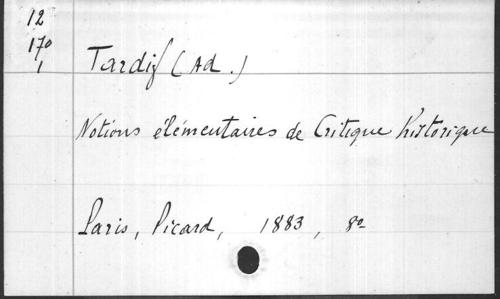 12
170
1
Tardif (Ad.)
Notions élémentaires de Critique historique
Paris, Picard, 1883, 8º